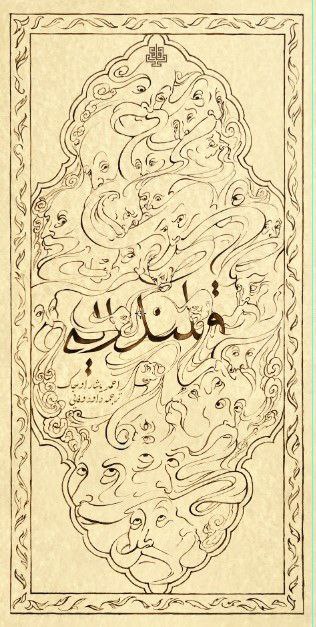 قلندریه
احمد یاشار اوجاک
ترجمه داود وفایی